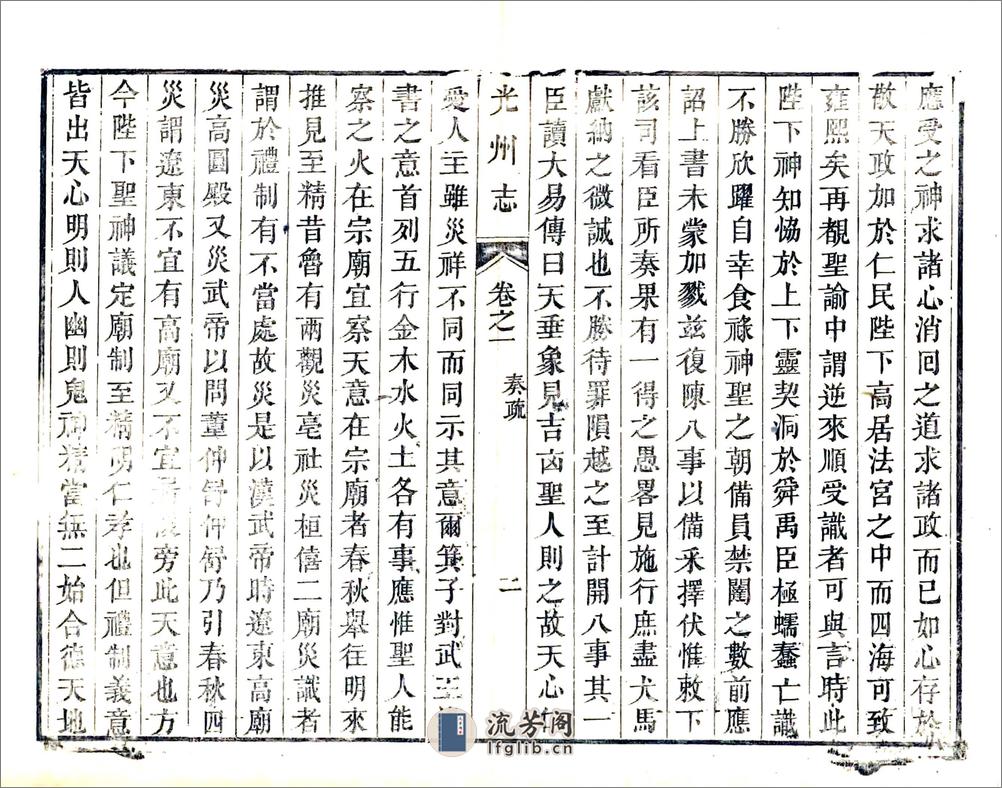 應受之神求諸心消回之道求諸政而已如心存於
敬天政加於仁民陛下高居法宮之中而四海可致
雍熙矣再覩聖諭中謂逆來順受識者可與言時此
陛下神知恊於上下靈契洞於舜禹臣極蠕蠢亡識
不勝欣躍自幸食祿神聖之朝備員禁闥之數前應
詔上書未蒙加戮兹復陳八事以備采擇伏惟敕下
該司看臣所奏果有一得之愚畧見施行庶盡犬馬
獻納之微誠也不勝待罪隕越之至計開八事其一
臣讀大易傳曰天垂象見吉凶聖人則之故天心
光州志 卷之一 奏疏 二
愛人主雖災祥不同而同示其意爾箕子對武王
書之意首列五行金木水火土各有事應惟聖人能
察之火在宗廟宜察天意在宗廟者春秋舉往明來
推見至精昔魯有兩觀災亳社災桓僖二廟災識者
謂於禮制有不當處故災是以漢武帝時遼東高廟
災高園殿又災武帝以問董仲舒仲舒乃引春秋四
災謂遼東不宜有高廟又不宜旁此天意也方
今陛下聖神議定廟制至精明仁孝也但禮制義意
皆出天心明則人幽則鬼神精當無二始合德天地
流芳阁
lfglib.cn